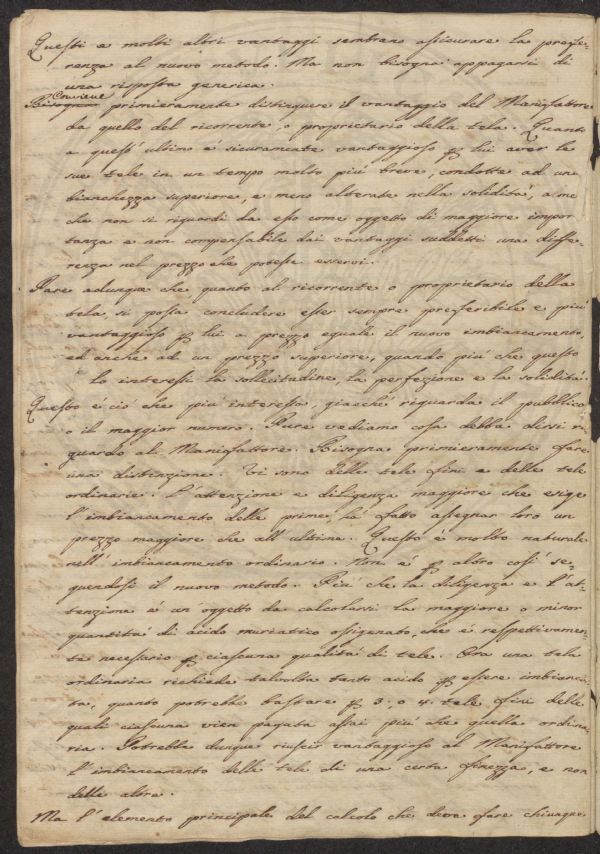 Questi e molti altri vantaggi sembran assicurare la prefe-
renza al nuovo metodo. Ma non bisogna appagarsi di
una risposta generica.
Conviene
Bisogna primieramente distinguere il vantaggio del Manifattore
da quello del ricorrente, o proprietario della tela. Quanto
a quest' ultimo è sicuramente vantaggioso p lui aver le
sue tele in un tempo molto più breve, condotte ad una
bianchezza superiore, e meno alterate nella solidità, a me
che non si riguardi da esso come oggetto di maggiore impor
tanza e non compensabile dai vantaggi suddetti una diffe-
renza nel prezzo che potesse esservi.
Pare adunque che quanto al ricorrente o proprietario della
tela, si possa concludere esser sempre preferibile e più
vantaggioso p lui a prezzo eguale il nuovo imbiancamento,
ed anche ad un prezzo superiore, quando più che questo
lo interessi la sollecitudine, la perfezione e la solidità.
Questo è ciò che più interessa, giacchè riguarda il pubblico
o il maggior numero. Pure vediamo cosa debba dirsi ri
guardo al Manifattore. Bisogna primieramente fare
una distinzione. Vi sono delle tele fini e delle tele
ordinarie. L'attenzione e diligenza maggiore che esige
l'imbiancamento delle prime, fà fatto assegnar loro un
prezzo maggiore che all'ultime. Questo è molto naturale
nell' imbiancamento ordinario. Non è p altro così se-
guendosi il nuovo metodo. Più che la diligenza e l'at-
tenzione è un oggetto da calcolarsi la maggiore o minor
quantità di acido muriatico ossigenato, che è respettivamen-
te necessario p ciascuna qualità di tele. Ora una tela
ordinaria richiede talvolta tanto acido p essere imbianca
ta, quanto potrebbe bastare p 3. o 4. tele fini delle
quali ciascuna vien pagata assai più che quella ordina
ria. Potrebbe dunque riuscir vantaggioso al Manifattore
l'imbiancamento delle tele di una certa finezza, e non
delle altre.
Ma l'elemento principale del calcolo che deve fare chiunque